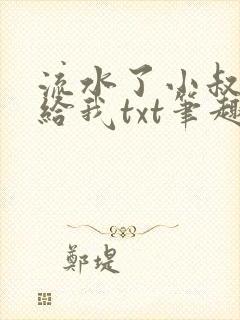 流水了小叔
給我txt筆趣
鄭堤